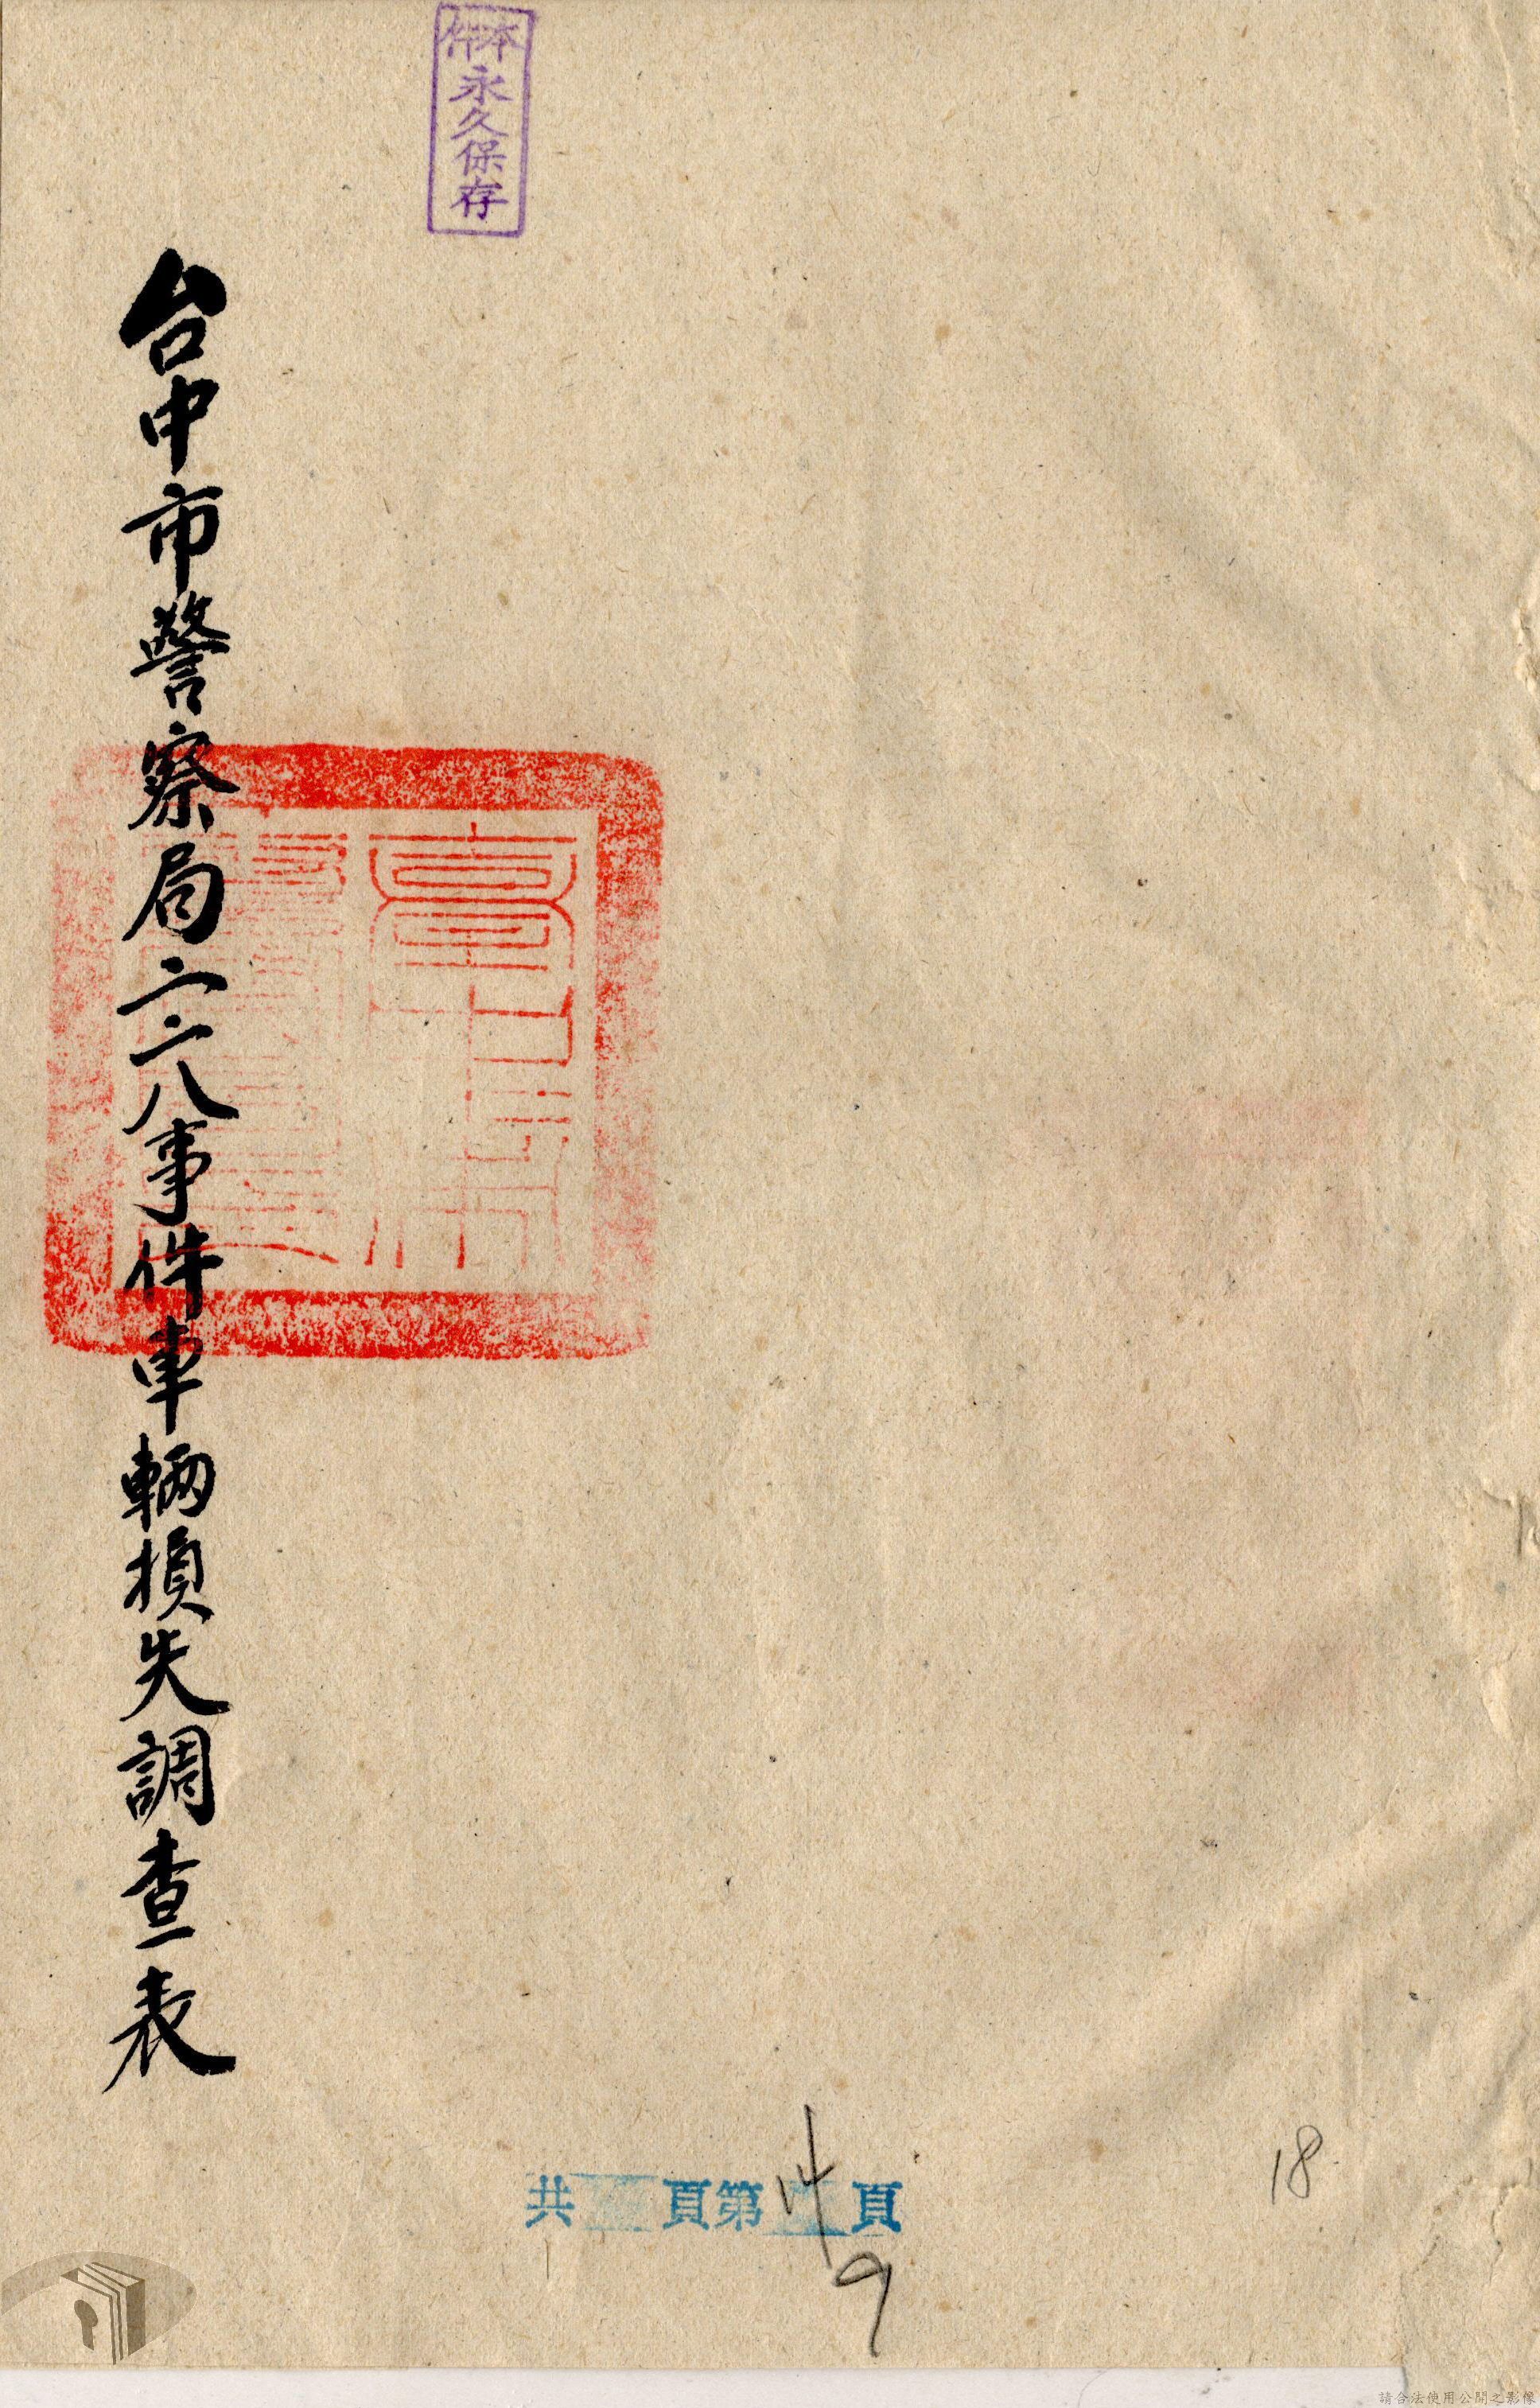 本件
永久保存
台中市警察局二二八事件車輛損失調查表
共 頁第14頁
9
18
請合法使用公開之影像